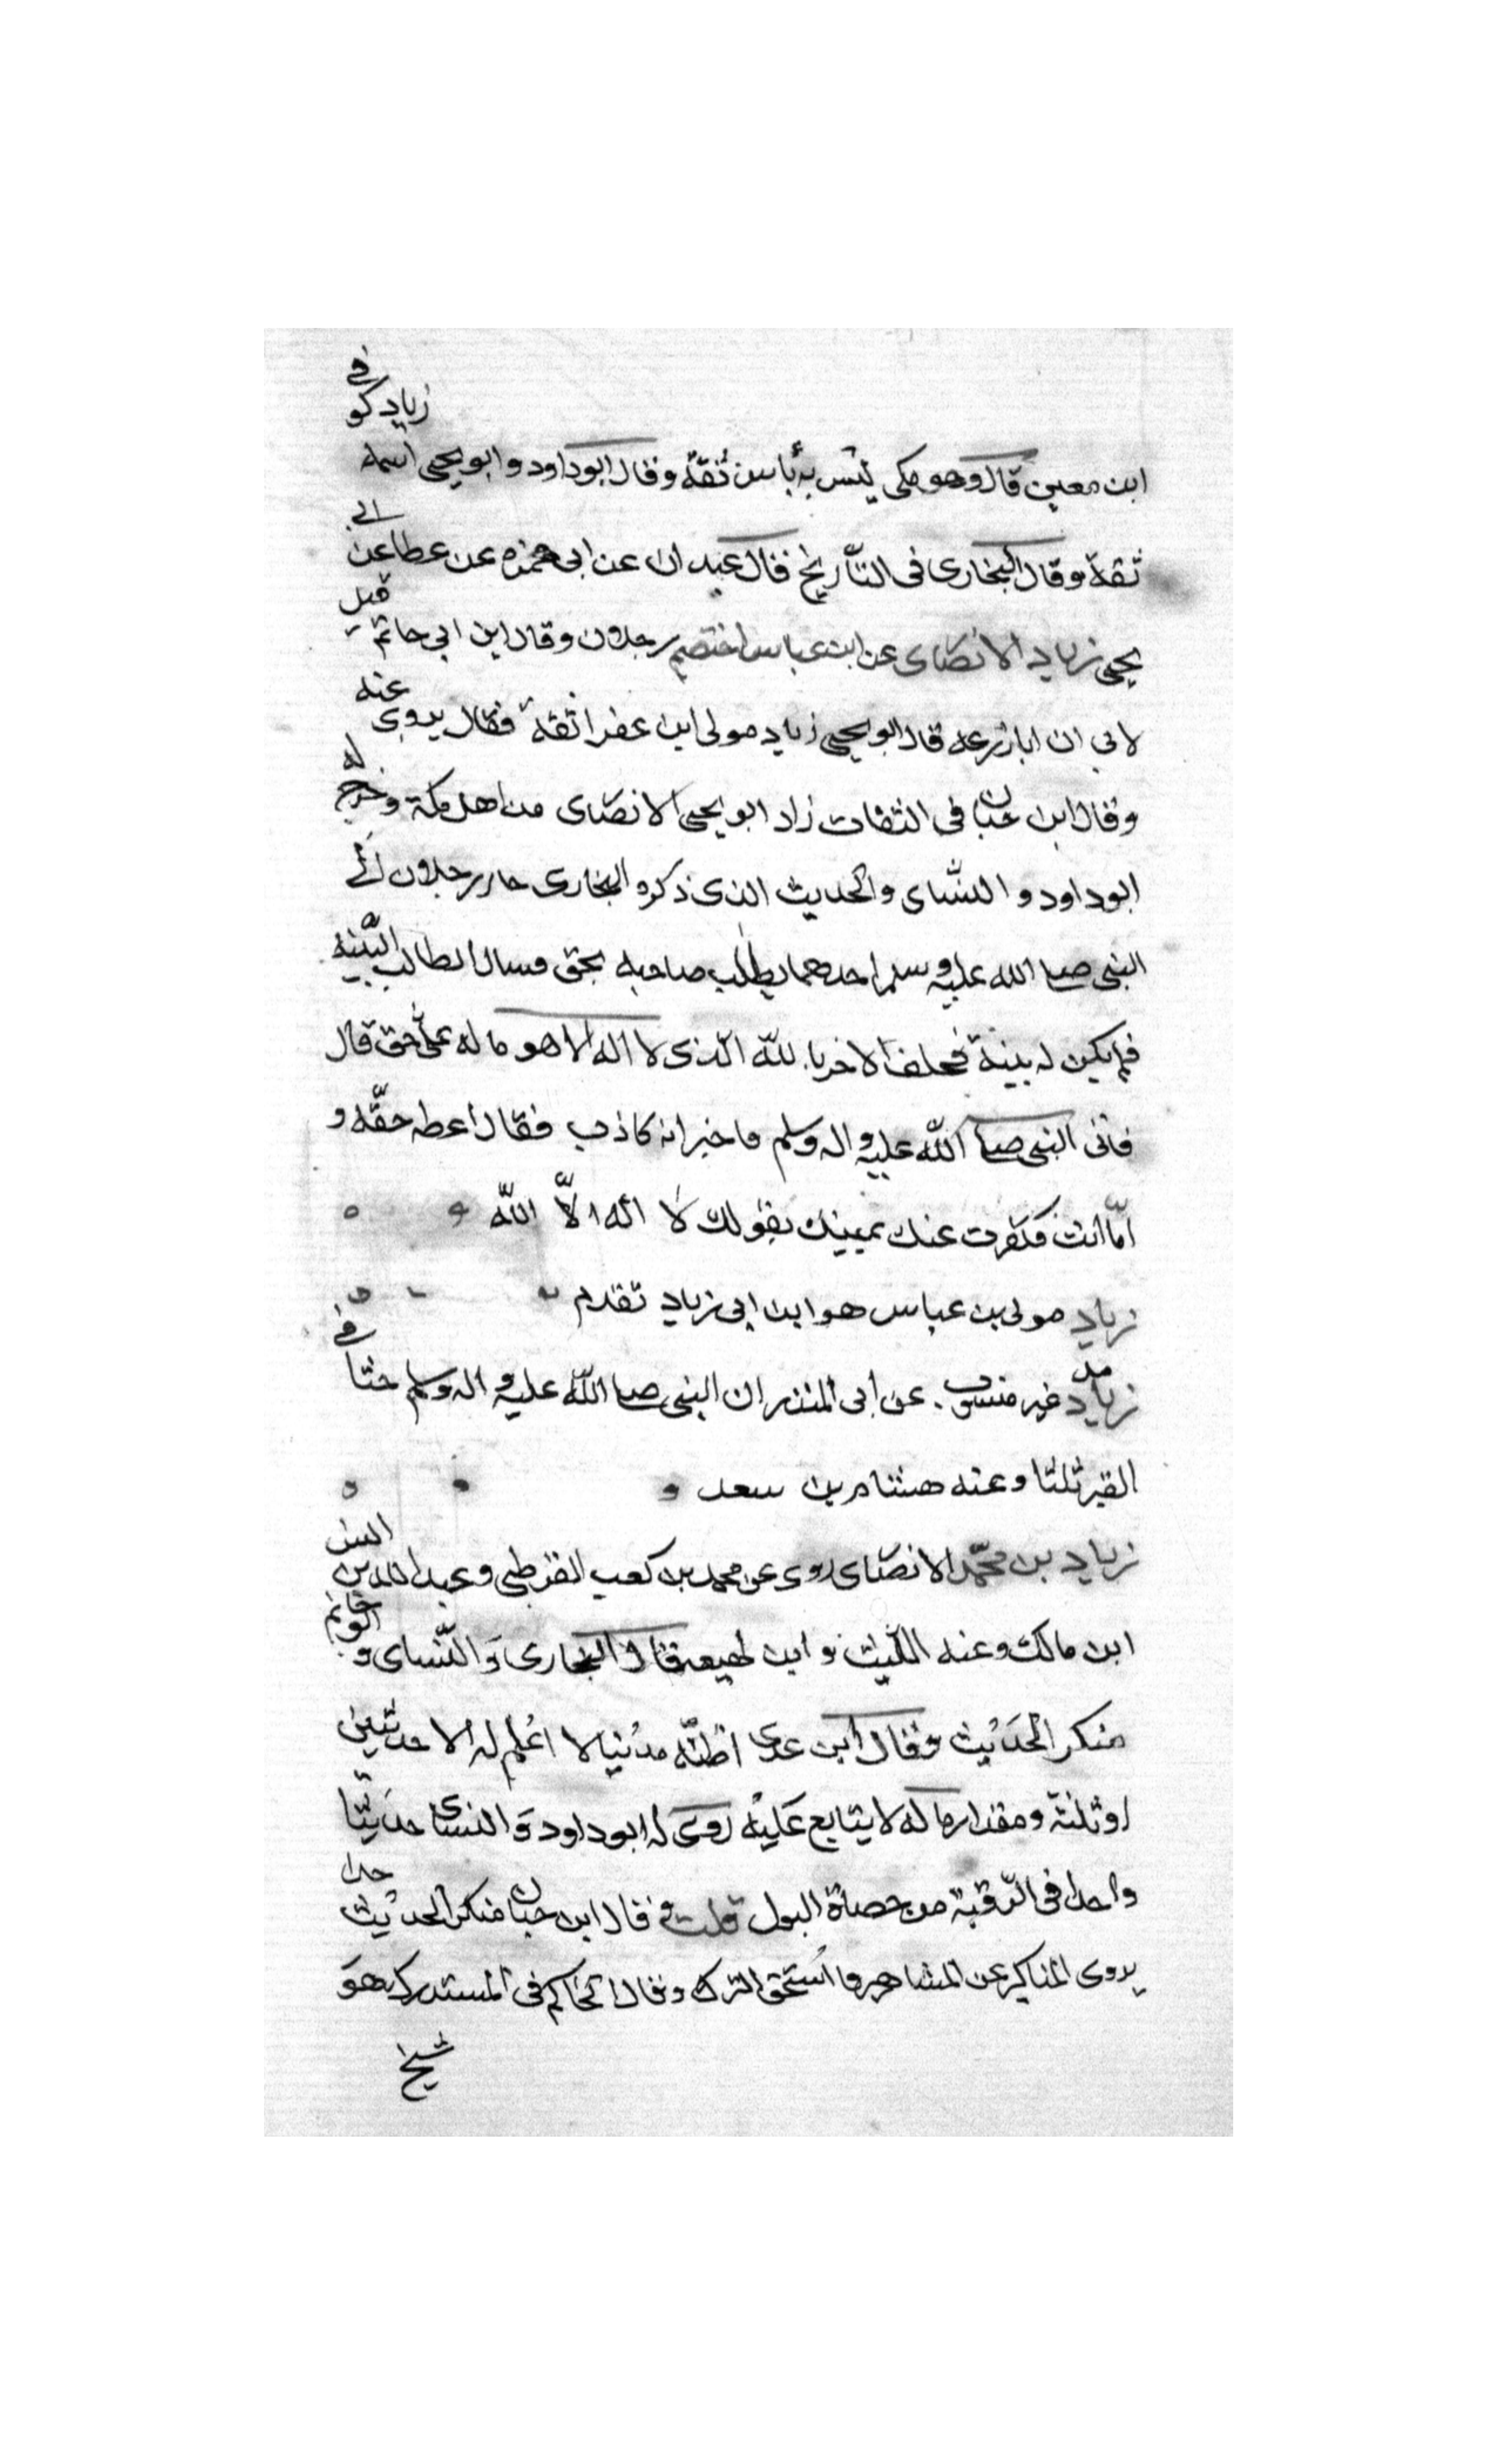 ابن معين قال وهو مكى ليس به بأس ثقة وقال ابوداود وابو يحيى اسمه زياد كوفى
ثقة وقال البخارى فى التأريخ قال عبدان عن ابى حمزه عن عطا عن ابى
يحيى زياد الانصارى عن ابن عباس اختصم رجلان وقال ابن ابى حاتم قيل
لابى ان ابا زرعه قال ابو يحيى زياد مولى ابن عفرا ثقة فقال يروى عنه
وقال ابن حبان فى الثقات زاد ابو يحيى الانصارى من اهل مكة وخرج له
ابوداود والنسّاى والحديث الذى ذكره البخارى جاء رجلان الى
النبى صلى الله عليه وسلم احدهما يطلب صاحبه بحق فسال الطالب البيّنه
فلم يكن له بينة فحلف الاخر بالله الّذى لا اله الا هو ما له علىّ حق قال
فاتى النبى صلى الله عليه واله وسلم فاخبر انه كاذب فقال اعطه حقّه و
امّا انت فكفرت عنك يمينك بقولك لا اله الاّ الله
زياد مولى بن عباس هو ابن ابى زياد تقدم
زياد غير منسوب عن ابى المنذر ان النبى صلى الله عليه واله وسلم حثا فى
القبر ثلثا وعنه هشام بن سعد
زياد بن محمّد الانصارى روى عن محمد بن كعب القرظى وعبد الله بن انس
ابن مالك وعنه اللّيث وابن لهيعه قال البخارى والنّساى وابوحاتم
منكر الحديث وقال ابن عدى اظنّه مدنيا لا اعلم له الا حديثين
او ثلثة ومقدار ما له لا يتابع عليه روى له ابوداود والنساى حديثا
واحدا فى الرّقية من حصاة البول قلت وقال ابن حبان منكر الحديث جدا
يروى المناكير عن المشاهير فاستحق الترك وقال الحاكم فى المستدرك هو
شيخ